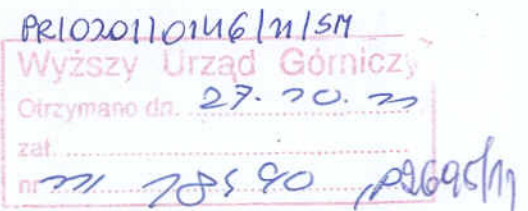 PR/0201/0146/11/SM
Wyższy Urząd Górniczy
Otrzymano dn. 27. 10. 11
zał.
nr 18590 P2695/11